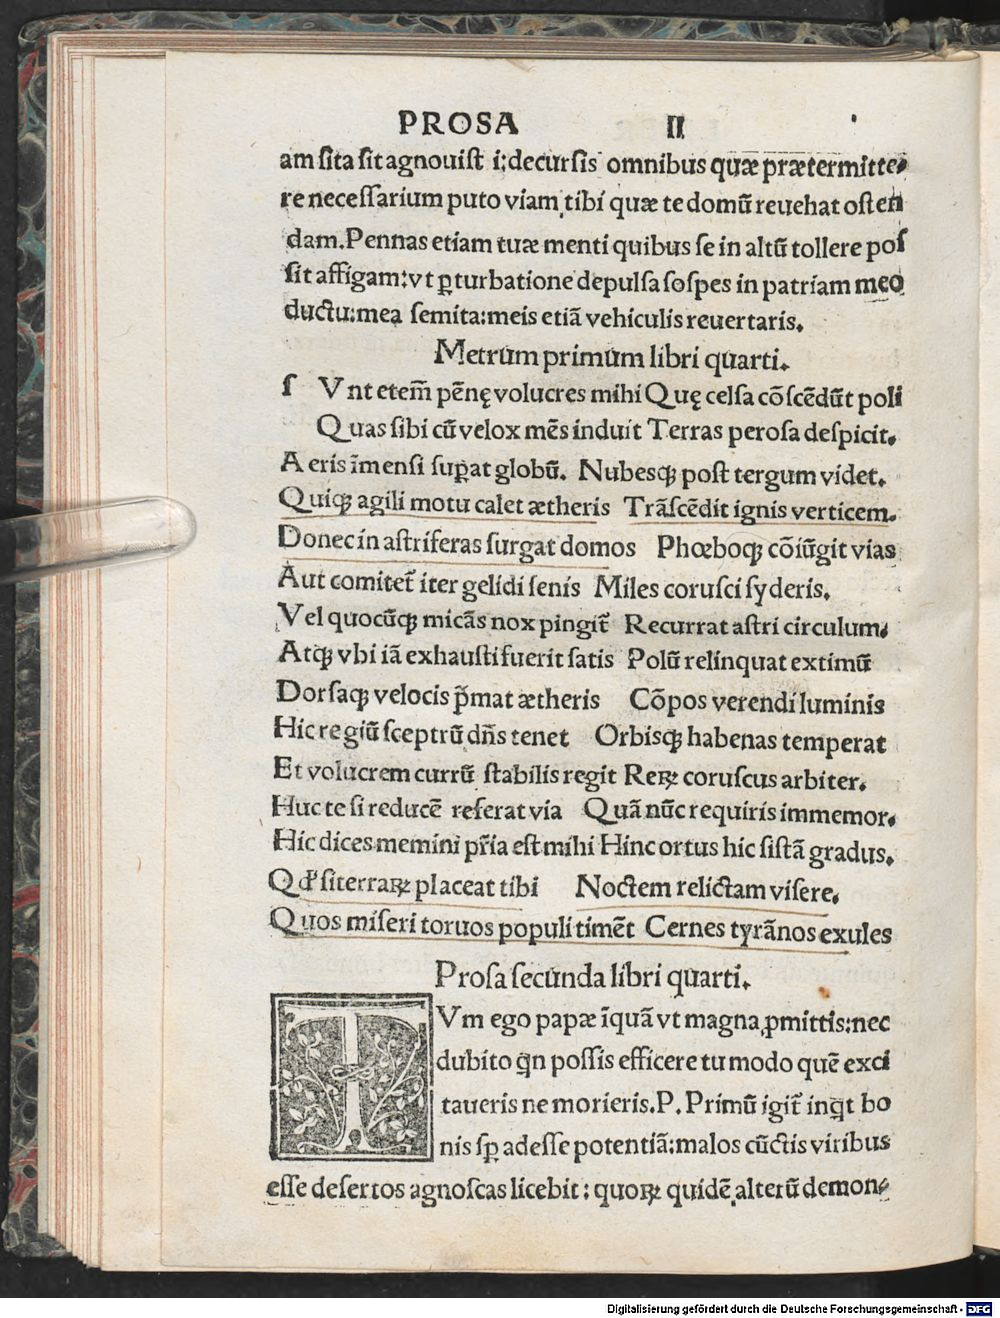 PROSA II
am ſita ſit agnouiſti;decurſis omnibus quæ prætermitte⸗
re neceſſarium puto viam,tibi quæ te domū reuehat oſten
dam.Pennas etiam tuæ menti quibus ſe in altū tollere poſ
ſit affigam:vt ꝑturbatione depulſa ſoſpes in patriam meo
ductu:mea ſemita:meis etiā vehiculis reuertaris.
Metrum primum libri quarti.
ſ Vnt etem̄ pēnę volucres mihi Quę celſa cōſcēdūt poli
Quas ſibi cū velox mēs induit Terras peroſa deſpicit.
Aeris īmenſi ſuꝑat globū. Nubesqꝫ poſt tergum videt.
Quiqꝫ agili motu calet ætheris Trāſcēdit ignis verticem.
Donec in aſtriferas ſurgat domos Phœboqꝫ cōiūgit vias
Aut comitet᷑ iter gelidi ſenis Miles coruſci ſyderis.
Vel quocūqꝫ micās nox pingit᷑ Recurrat aſtri circulum.
Atqꝫ vbi iā exhauſti fuerit ſatis Polū relinquat extimū
Dorſaqꝫ velocis p̄mat ætheris Cōpos verendi luminis
Hic regiū ſceptrū dn̄s tenet Orbisqꝫ habenas temperat
Et volucrem currū ſtabilis regit Reꝝ coruſcus arbiter.
Huc te ſi reducē referat via Quā nūc requiris immemor.
Hic dices memini pr̄ia eſt mihi Hinc ortus hic ſiſtā gradus.
Qđ ſi terraꝝ placeat tibi Noctem relictam viſere.
Quos miſeri toruos populi timēt Cernes tyrānos exules
Proſa ſecunda libri quarti.
TVm ego papæ īquā vt magna ꝓmittis:nec
dubito qn̄ poſſis efficere tu modo quē exci
taueris ne morieris.P.Primū igit᷑ inqt bo
nis ſꝑ adeſſe potentiā:malos cūctis viribus
eſſe deſertos agnoſcas licebit: quoꝝ quidē alterū demon⸗
Digitalisierung gefördert durch die Deutsche Forschungsgemeinschaft - DFG